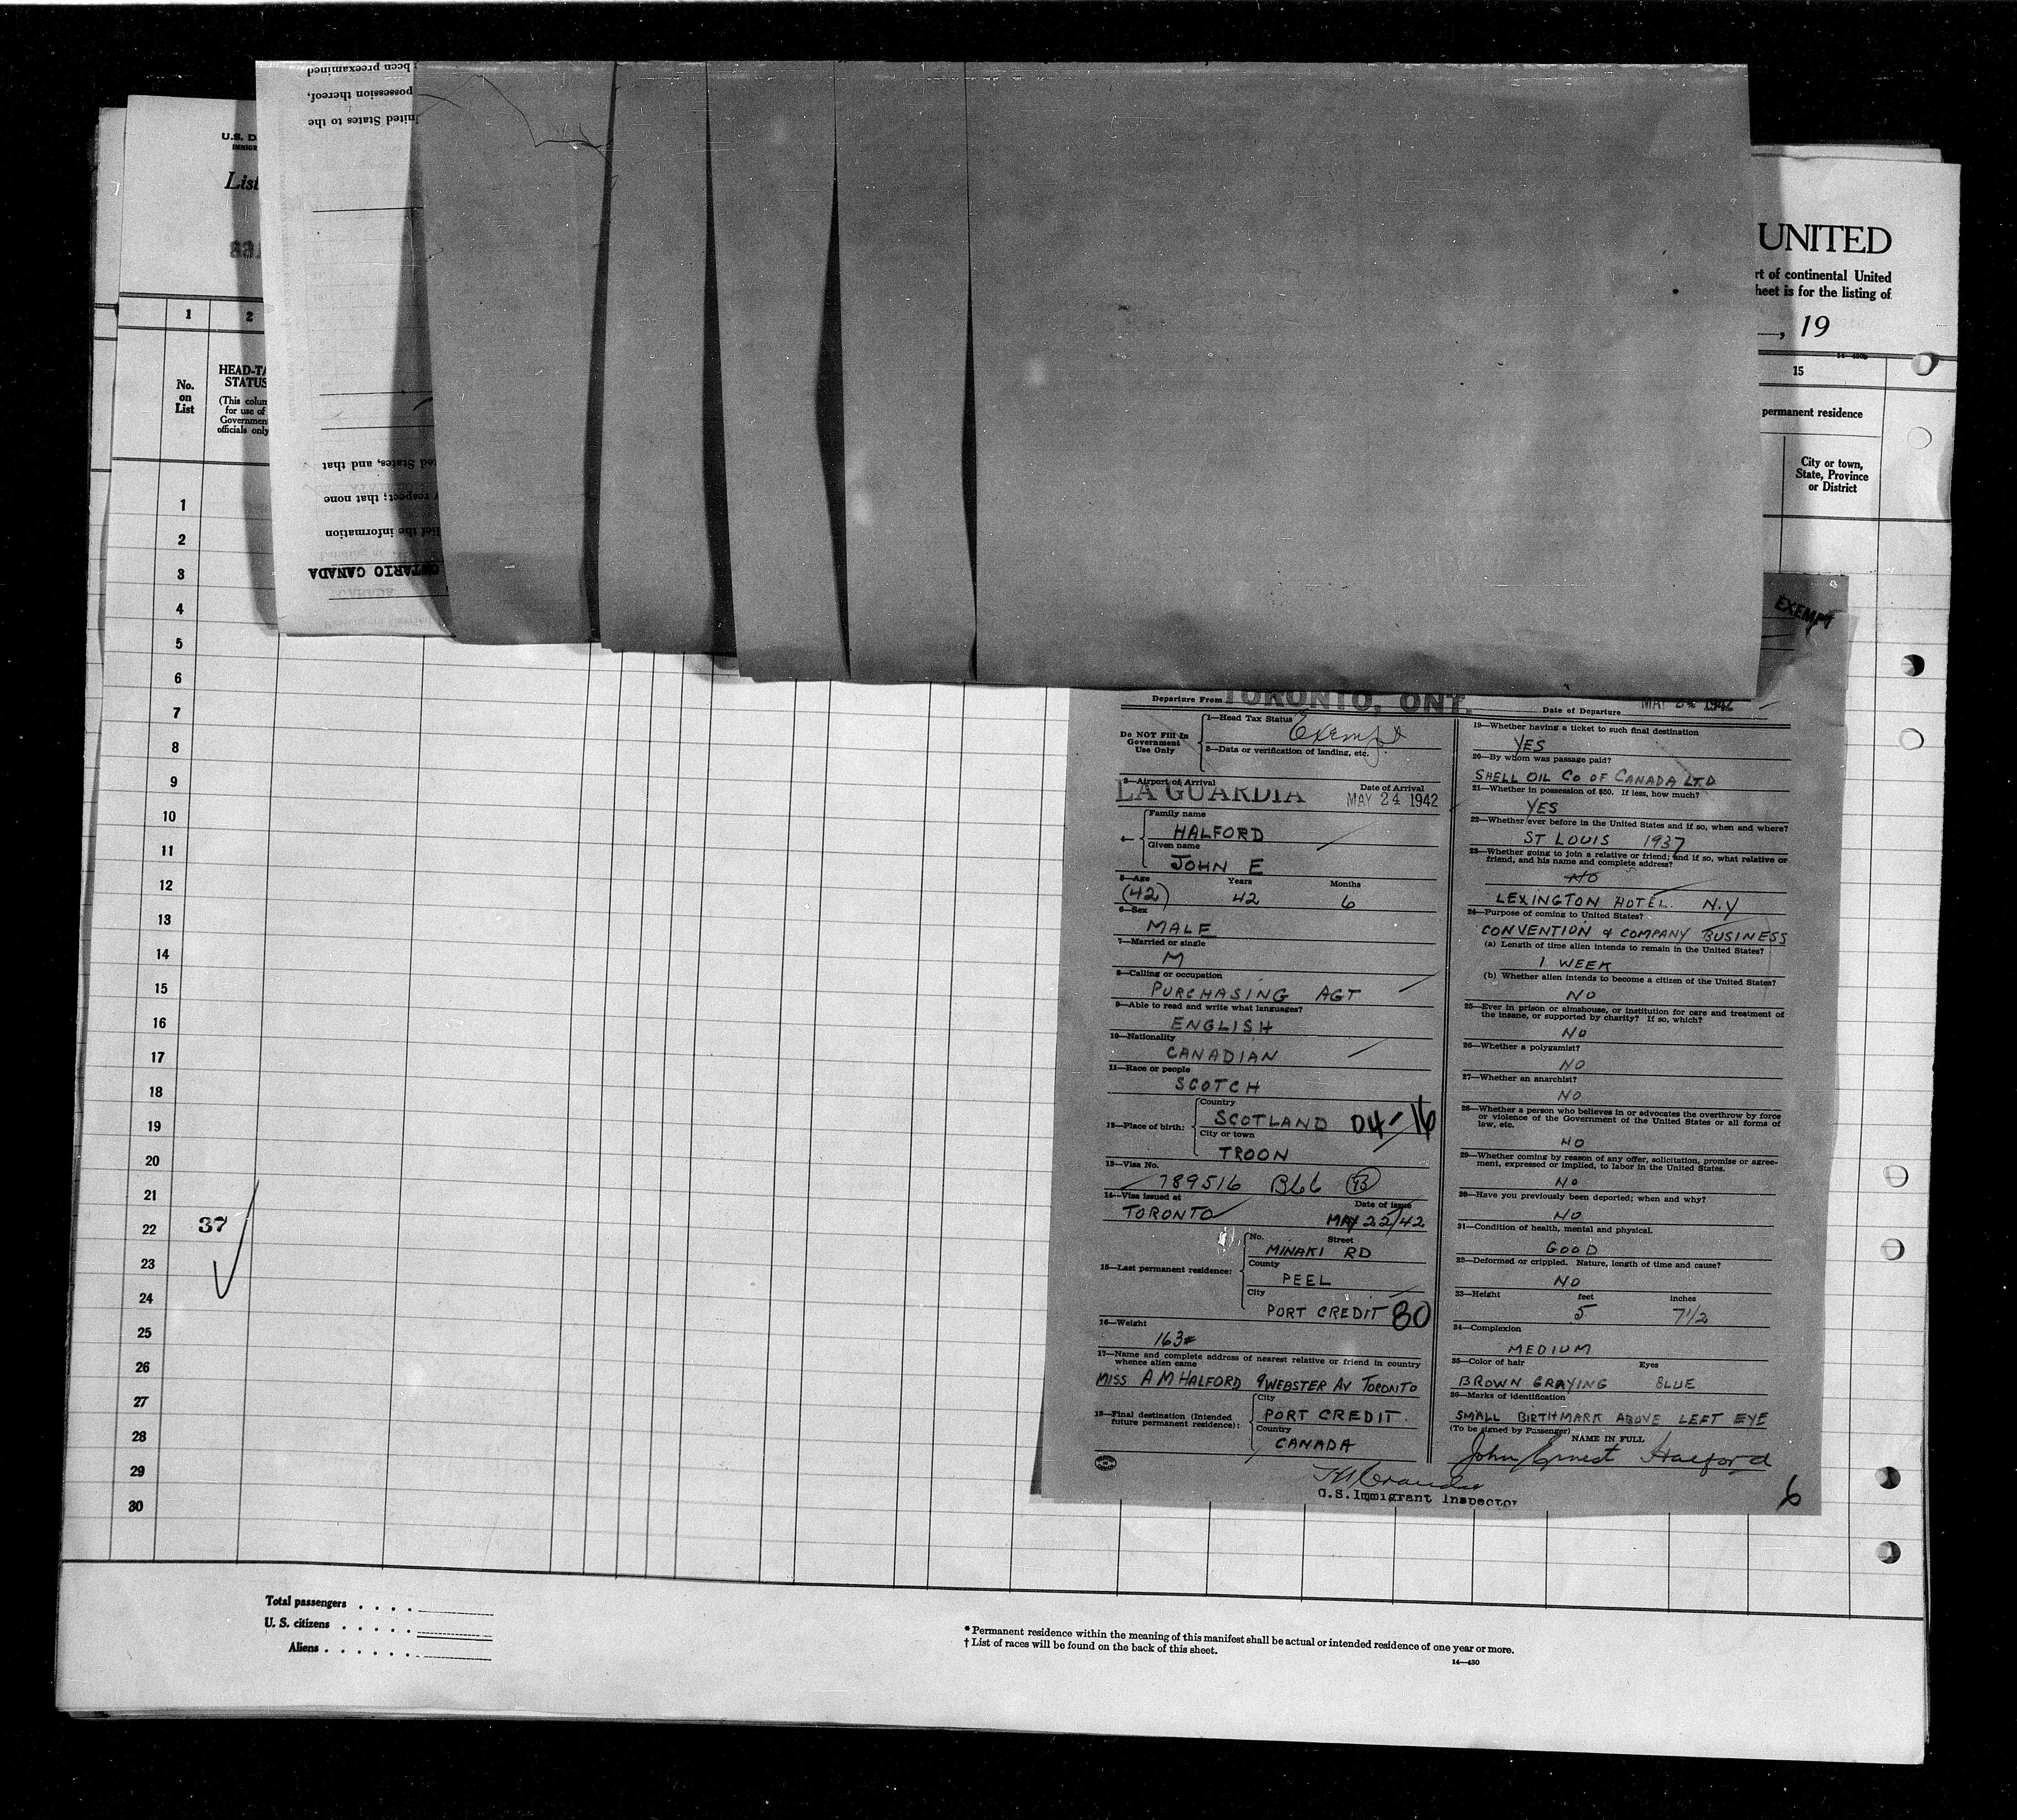 been preexamined
possession thereof,
United States to the
States, and that
respect; that none
the information
ONTARIO CANADA
U.S. D
List
1
2
No.
on
List
HEAD-TA
STATUS
(This colum
for use of
Government
officials only
1
2
3
4
5
6
7
8
9
10
11
12
13
14
15
16
17
18
19
20
21
22
37
23
24
25
26
27
28
29
30
UNITED
rt of continental United
heet is for the listing of
, 19
15
permanent residence
City or town,
State, Province
or District
EXEMPT
Departure From TORONTO, ONT.
Date of Departure MAY 24 1942
Do NOT Fill In
Government
Use Only
1—Head Tax Status Exempt
2—Data or verification of landing, etc.
3—Airport of Arrival Date of Arrival
LA GUARDIA MAY 24 1942
Family name
HALFORD
Given name
JOHN E
5—Age Years Months
(42) 42 6
6—Sex
MALE
7—Married or single
M
8—Calling or occupation
PURCHASING AGT
9—Able to read and write what languages?
ENGLISH
10—Nationality
CANADIAN
11—Race or people
SCOTCH
12—Place of birth:
Country
SCOTLAND 04-16
City or town
TROON
13—Visa No.
789516 B66 B
14—Visa issued at Date of issue
TORONTO MAY 22/42
15—Last permanent residence:
No. Street
MINAKI RD
County
PEEL
City
PORT CREDIT 80
16—Weight
163#
17—Name and complete address of nearest relative or friend in country
whence alien came
MISS A M HALFORD 9 WEBSTER AV TORONTO
18—Final destination (Intended
future permanent residence):
City
PORT CREDIT.
Country
CANADA
U.S. Immigrant Inspector
19—Whether having a ticket to such final destination
YES
20—By whom was passage paid?
SHELL OIL CO OF CANADA LTD
21—Whether in possession of $50. If less, how much?
YES
22—Whether ever before in the United States and if so, when and where?
ST LOUIS 1937
23—Whether going to join a relative or friend; and if so, what relative or
friend, and his name and complete address?
NO
LEXINGTON HOTEL. N.Y
24—Purpose of coming to United States?
CONVENTION & COMPANY BUSINESS
(a) Length of time alien intends to remain in the United States?
1 WEEK
(b) Whether alien intends to become a citizen of the United States?
NO
25—Ever in prison or almshouse, or institution for care and treatment of
the insane, or supported by charity? If so, which?
NO
26—Whether a polygamist?
NO
27—Whether an anarchist?
NO
28—Whether a person who believes in or advocates the overthrow by force
or violence of the Government of the United States or all forms of
law, etc.
NO
29—Whether coming by reason of any offer, solicitation, promise or agree-
ment, expressed or implied, to labor in the United States.
NO
30—Have you previously been deported; when and why?
NO
31—Condition of health, mental and physical.
GOOD
32—Deformed or crippled. Nature, length of time and cause?
NO
33—Height feet inches
5 7 1/2
34—Complexion
MEDIUM
35—Color of hair Eyes
BROWN GRAYING BLUE
36—Marks of identification
SMALL BIRTHMARK ABOVE LEFT EYE
(To be signed by Passenger)
NAME IN FULL
John Ernest Halford
6
Total passengers
U. S. citizens
Aliens
* Permanent residence within the meaning of this manifest shall be actual or intended residence of one year or more.
† List of races will be found on the back of this sheet.
14—430